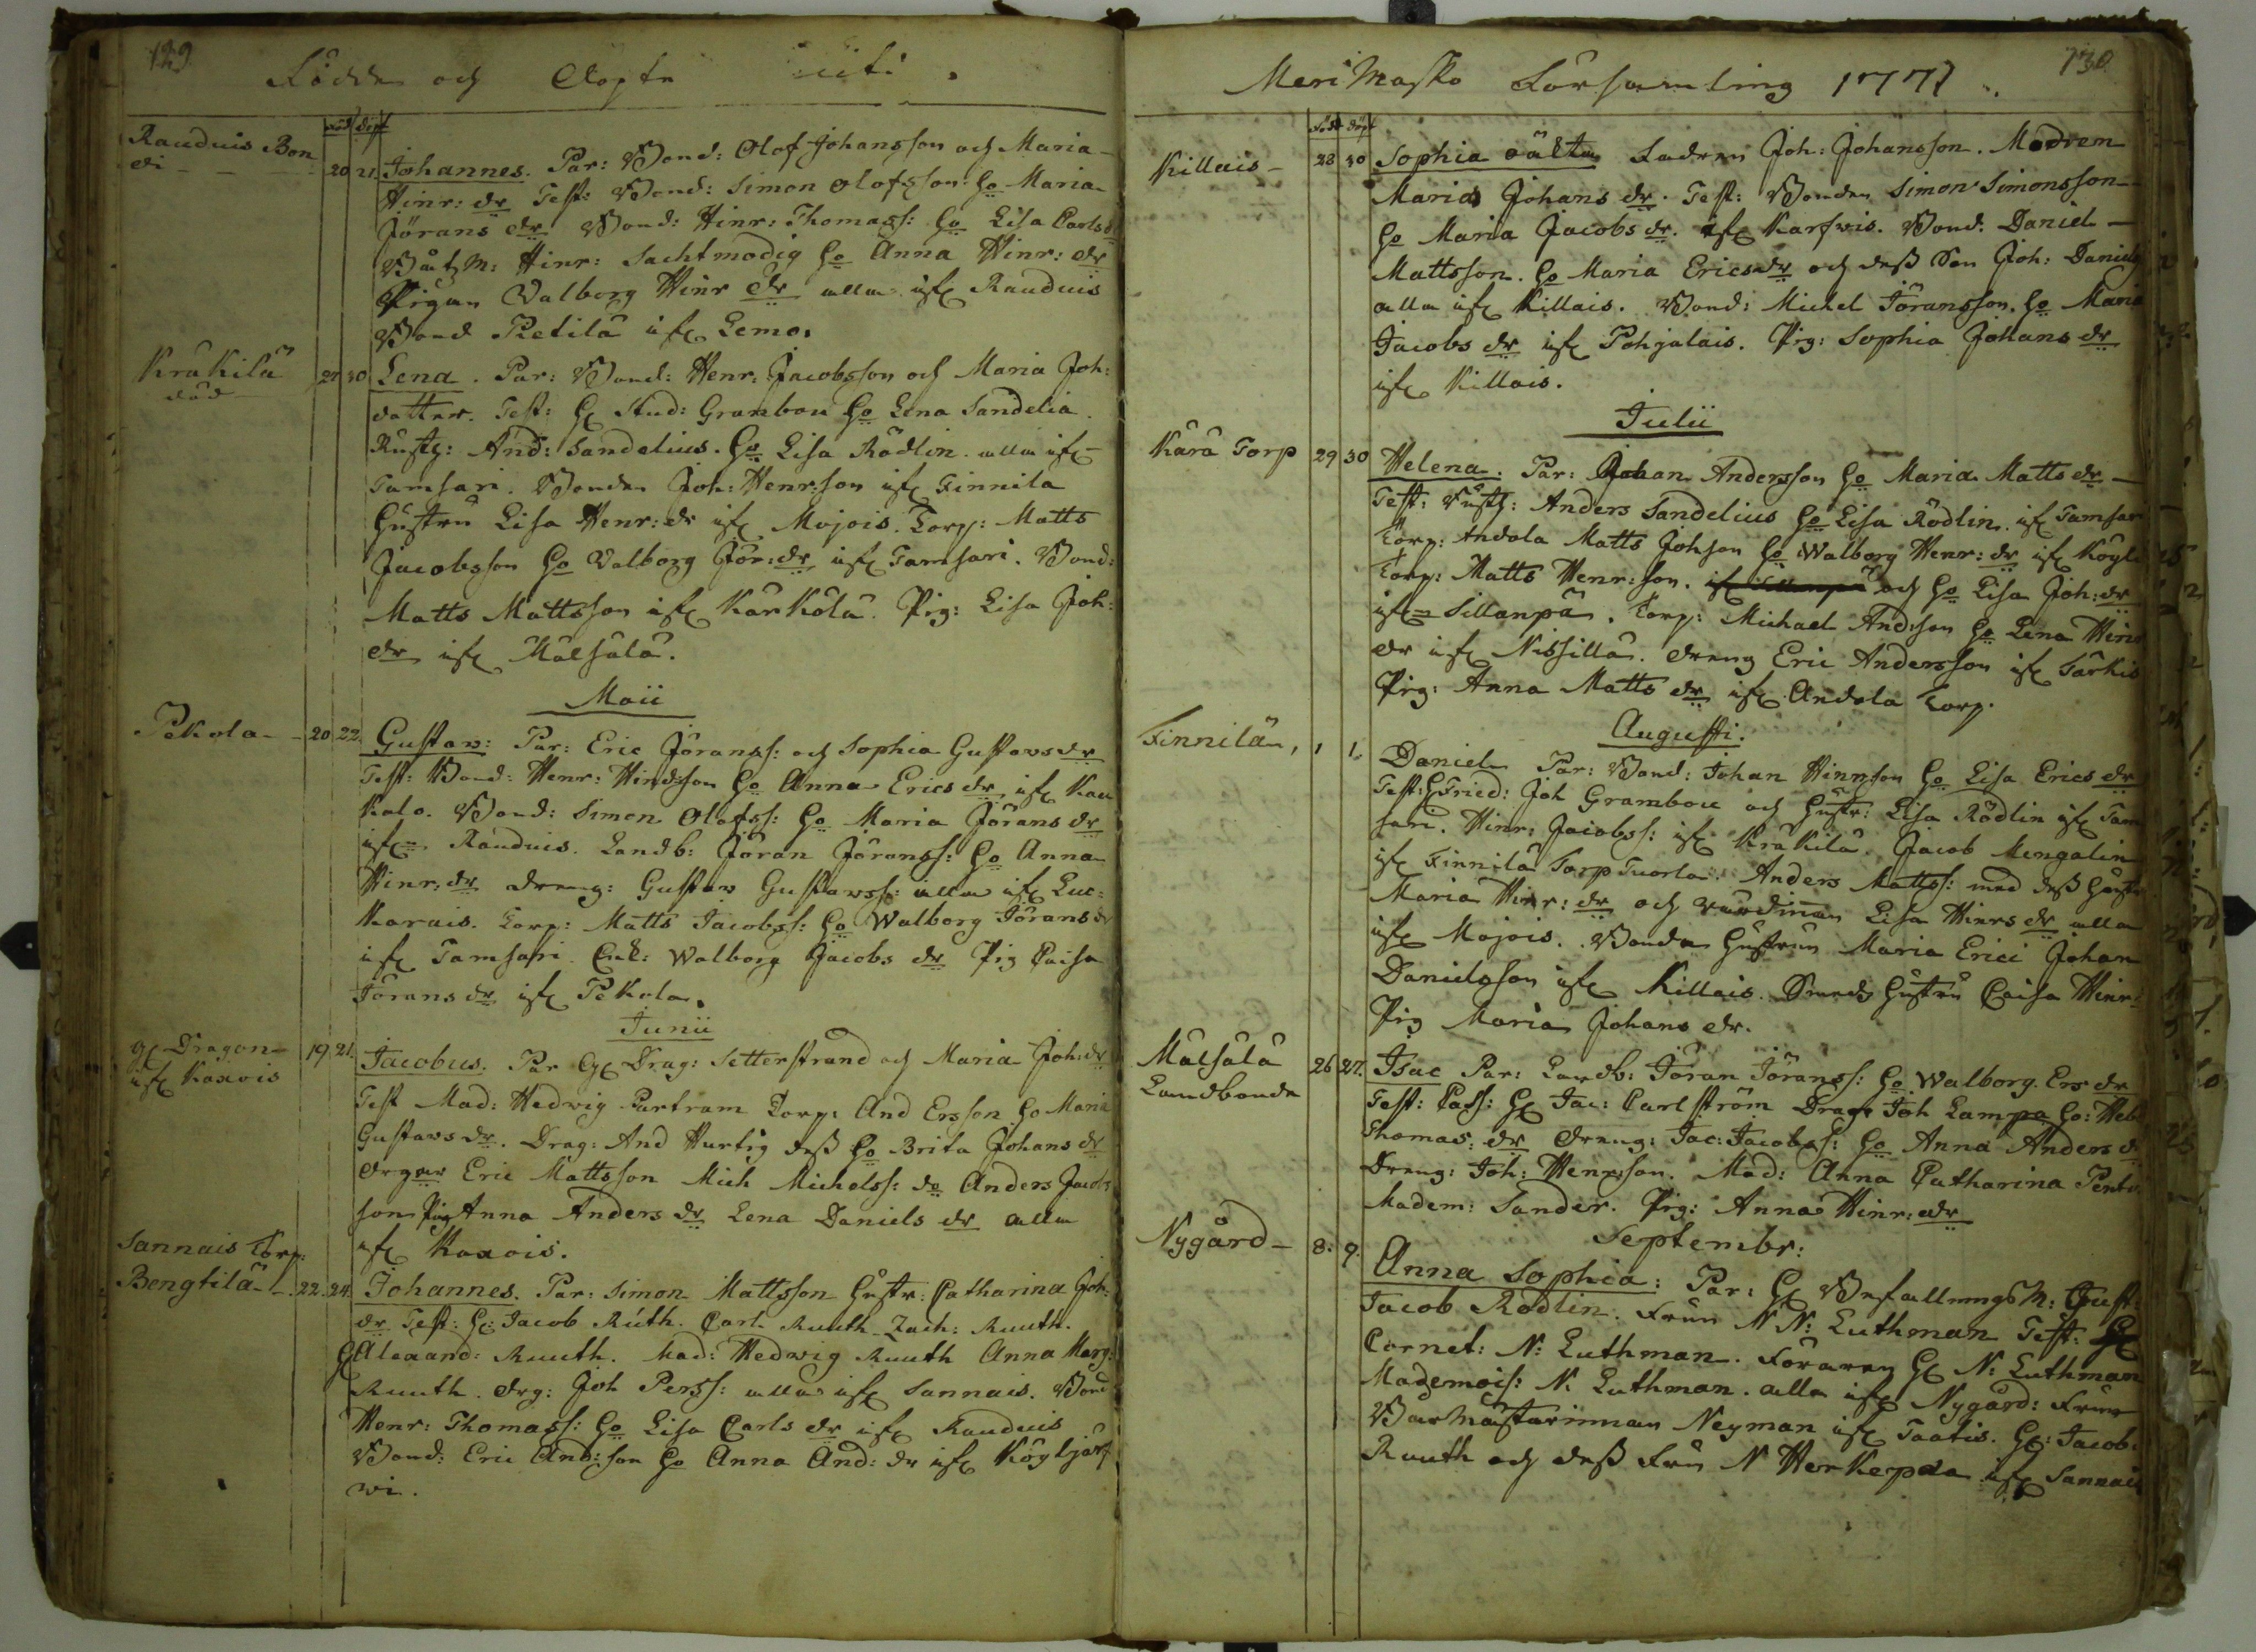 129
Födde och Döpte uti
född döpt
Rauduis Bon
di 20 21 Johannes. Par: Bond: Olof Johansson och Maria
Hinr: dr Test: Bond: Simon Olofsson ho Maria
Jörans dr Bond: Hinr: Thomass: ho Lisa Carls dr
Båtzm: Hinr: Sachtmodig ho Anna Hinr: dr
Pigan Walborg Hinr dr alla ifr Rauduis
Bond Pietilä ifr Lemo.
Kräkilä
död
27 30 Lena. Par: Bond: Henr: Jacobsson och Maria Joh:
dotter. Test: Hr Stud: Grambou ho Lena Sandelia
Rusth: And: Sandelius. ho Lisa Rödlin alla ifr
Tamsari. Bonden Joh: Henr:son ifr Finnila
Hustru Lisa Henr: dr ifr Mojois. Torp: Matts
Jacobsson ho Valborg Jör: dr ifr Tamsari. Bond:
Matts Mattsson ifr Kärkölä. Pig: Lisa Joh:
dr ifr Mälsälä.
Maii
Pekola 20 22 Gustav: Par: Eric Jöranss: och Sophia Gustavs dr
Test: Bond: Henr: Hindsson ho Anna Erics dr ifr Kau
kalo. Bond: Simon Olofss: ho Maria Jörans dr
ifr Rauduis. Landb: Jöran Jöranss: ho Anna
Hinr: dr dreng: Gustav Gustavss: alla ifr Luc:
karais. Torp: Matts Jacobss: ho Walborg Jörans dr
ifr Tamsari. Enk: Walborg Jacobs dr Pig Caisa
Jörans dr ifr Pekola.
Junii
Hr Dragon
ifr Kaxois
19 21. Jacobus. Par Hr Drag: Setterstrand och Maria Joh: dr
Test Mad: Hedwig Partram Torp: And Ersson ho Maria
Gustavs dr. Drag: And Hurtig dess ho Brita Johans dr
drgar Eric Mattsson Mich Michelss: do Anders Jacobs
son Pig Anna Anders dr Lena Daniels dr alla
ifr Kaxois.
Sannais Torp:
Bengtilä 22. 24. Johannes. Par: Simon Mattsson hustr: Catharina Joh:
dr Test: Hr Jacob Ruth. Carl Ruuth Zach: Ruuth.
Hr Alexand: Ruuth. Mad: Hedwig Ruuth Anna Marg:
Ruuth. drg: Joh Perss: alla ifr Sannais. Bond
Henr: Thomass: ho Lisa Carls dr ifr Rauduis
Bond: Eric And:son ho Anna And: dr ifr Köyljärf
wi.
Meri Masko Församling 1771.
130
född döpt
Killais 28 30 Sophia oäkta Fadren Joh: Johansson. Modren
Maria Johans dr. Test: Bonden Simon Simonsson
ho Maria Jacobs dr. ifr Karfvis. Bond: Daniel
Mattsson. ho Maria Erics dr och dess Son Joh: Daniels
alla ifr Killais. Bond: Michel Jöransson. ho Maria
Jacobs dr ifr Pohjalais. Pig: Sophia Johans dr
ifr Killais.
Julii
Kärä Torp 29 30 Helena. Par: Johan Andersson ho Maria Matts dr
Test: Rusth: Anders Sandelius ho Lisa Rödlin. ifr Tamsar
Torp: Andola Matts Johson ho Walborg Henr: dr ifr Köyl
Torp: Matts Henr:son. ifr Sillanpä och ho Lisa Joh: dr
ifr Sillanpä. Torp: Michael And:son ho Lena Hinr
dr ifr Nissillä. dreng Eric Andersson ifr Tärkis
Pig: Anna Matts dr ifr Andola Torp.
Augusti.
Finnilä 1 1. Daniel Par: Bond: Johan Hinrsson ho Lisa Erics dr
Test: Joh Grambou och hustr: Lisa Rödlin ifr Tam
sari. Hinr: Jacobss: ifr Kräkilä. Jacob Mengalin
ifr Finnilä Torp Tuorla. Anders Mattss: med dess hustr
Maria Hinr: dr och Lisa Hinrs dr alla
ifr Mojois. Bonde hustrun Maria Erici Johan
Danielsson ifr Killais. hustru Caisa Hinr:
Pig Maria Johans dr.
Mälsälä
Landbonde
26 27. Isac Par: Landb: Jöran Jöranss: ho Walborg Ers dr
Test: Hr Jac: Carlström Drag: Joh Lampa ho: Heb
Thomas: dr dreng: Jac: Jacobss: ho Anna Anders dr
Dreng: Joh: Henr:son. Mad: Anna Catharina
Madem: Sander. Pig: Anna Hinr: dr
Septembr:
Nygård 8. 9. Anna Sophia: Par: Hr Befallningsm: Gust:
Jacob Rodlin. Frun N N: Luthman Test: Hr
Cornet: N: Luthman. Föraren Hr N: Luthman
Mademois: N: Luthman. alla ifr Nygård: Frun
Neyman ifr Taatis. Hr: Jacob
Ruuth och dess Fru N Herkepaa ifr Sannais